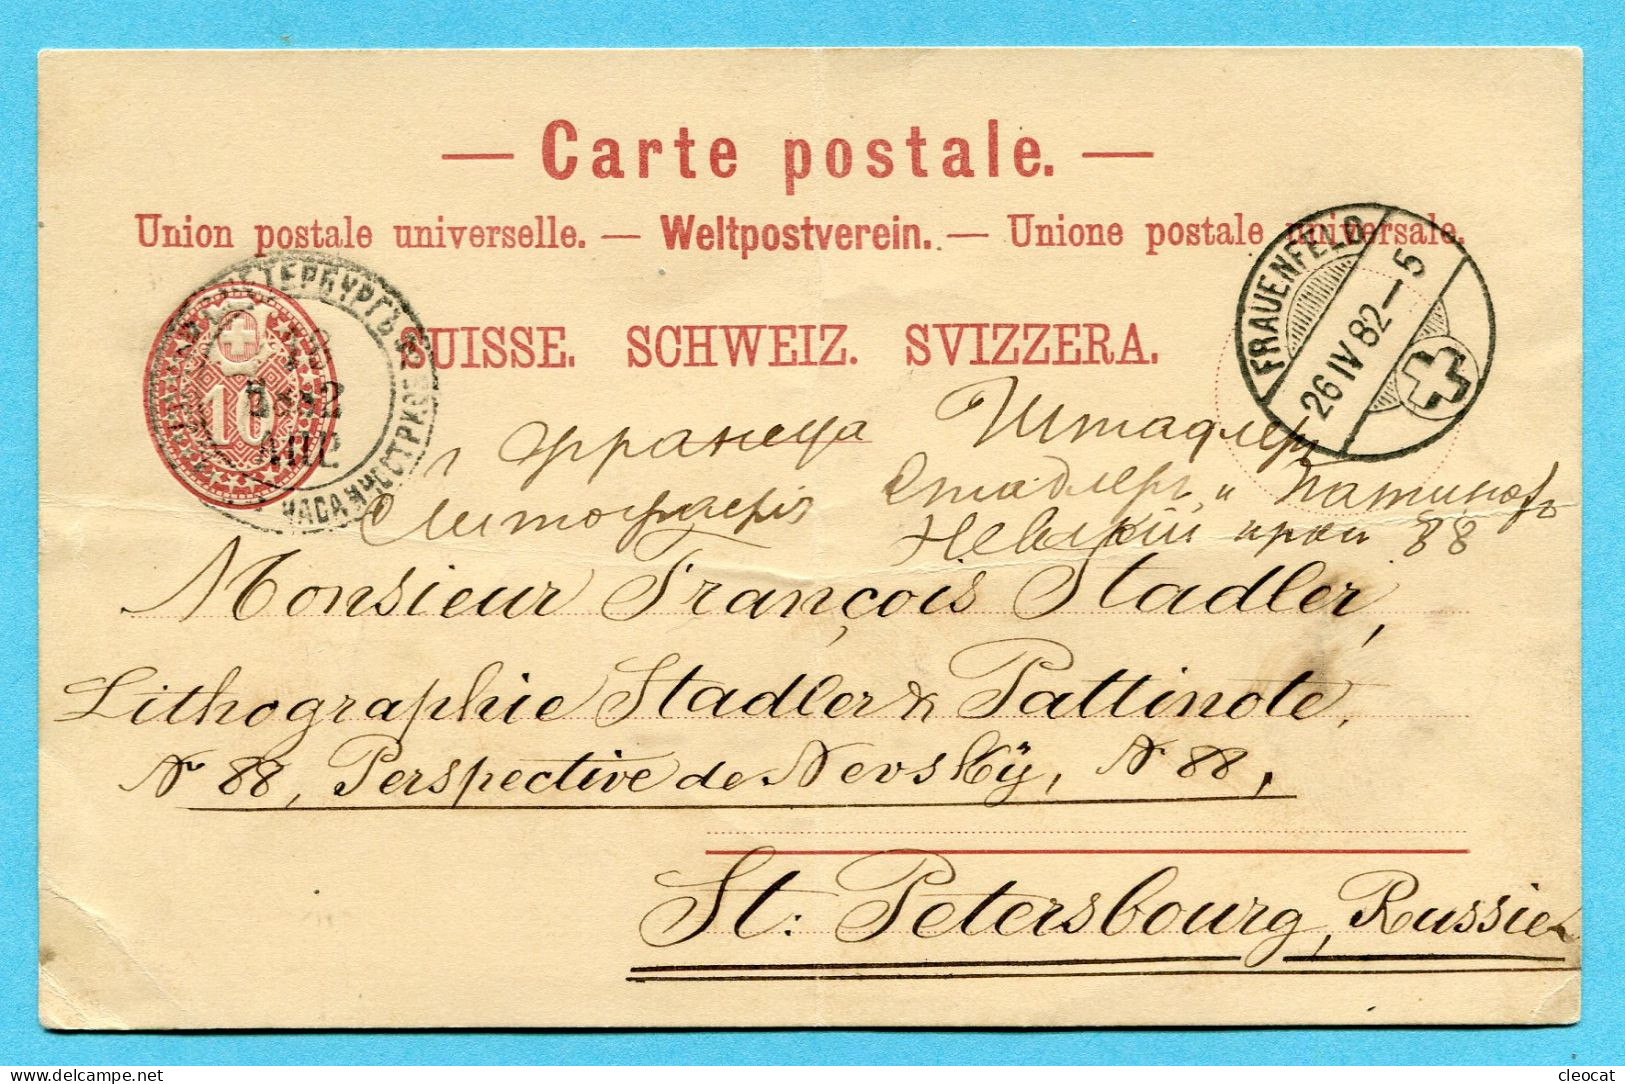 — Carte postale. —
Union postale universelle. — Weltpostverein. — Unione postale universale.
SUISSE. SCHWEIZ. SVIZZERA.
10
FRAUENFELD
26 IV 82 — 5
Франсуа Штадлер
Литографія Стадлеръ и Патинотъ
Невскій 88
Monsieur François Stadler,
Lithographie Stadler & Pattinote,
N 88, Perspective de Nevskÿ, N 88,
St: Petersbourg, Russie
cleocat